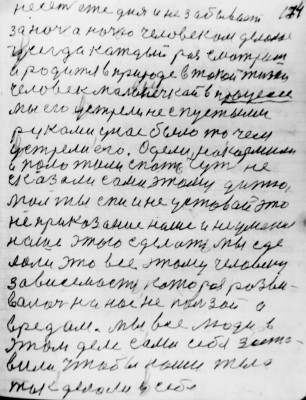 несет эте дня и не забывает 174
за ноч а ночю человеком делает
усегда каждый раз смотрит
и родится в природе в такой жизни
человек маленичкой в процессе
мы его устрели не с пустыми
руками у нас было то чем
устрели его. Одели, накормили
и положили спать чуть не
сказали сами этому дитю,
мол ты спи и не уставай это
не приказание наше и не умение
наше этого сделать, мы сде
лали это все этому человеку
зависемасть, которая разви
валась на нас не ползой а
вредам. мы все люди в
этом деле сами себя заста
вили, чтобы наши тела
так делали у себя